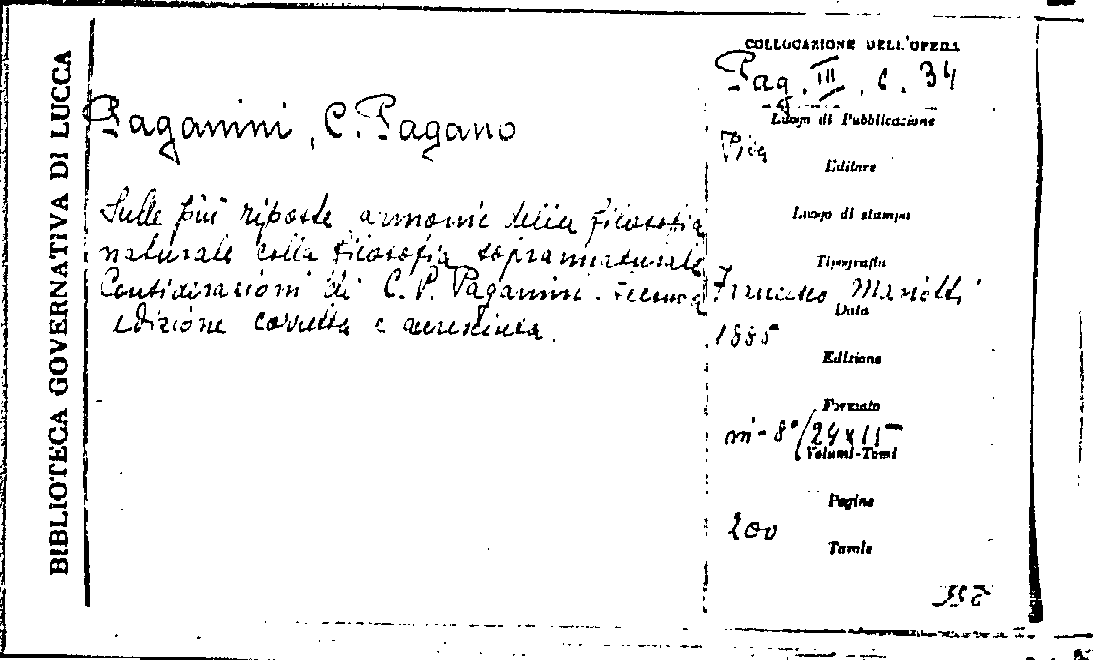 BIBLIOTECA GOVERNATIVA DI LUCCA
Paganini, C. Pagano
Sulle più riposte armonie della filosofia
naturale colla filosofia soprannaturale
Considerazioni di C. P. Paganini. Seconda
edizione corretta e accresciuta.
COLLOCAZIONE DELL'OPERA
Pag. III. C. 34
Luogo di Pubblicazione
Pisa
Editore
Luogo di stampa
Tipografia
Francesco Mariotti
Data
1885
Edizione
Formato
in-8°/24x15
Volumi-Tomi
Pagine
200
Tavole